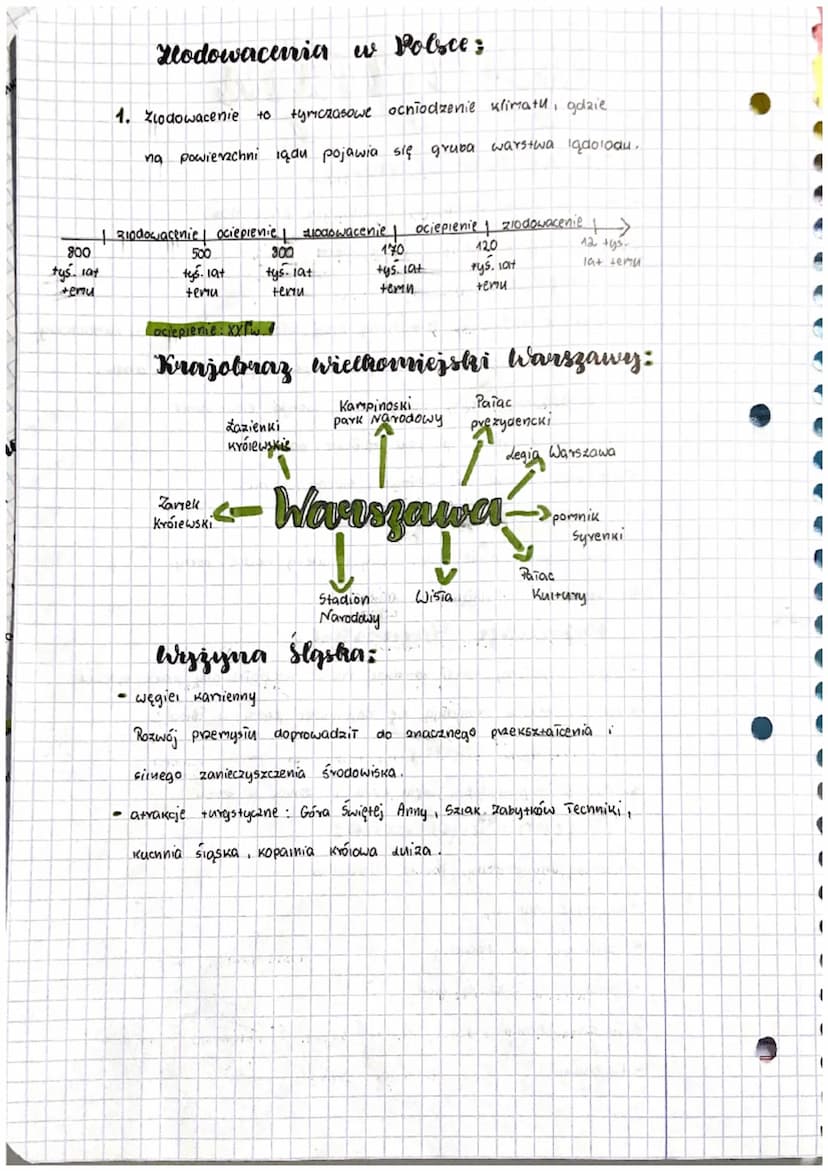 Zlodowacenia w Polsce:
1. Zlodowacenie to tymczasowe ochłodzenie klimatu, gdzie
na powierzchni lądu pojawia się gruba warstwa lądolodu.
zlodowacenie ocieplenie zlodowacenie ocieplenie zlodowacenie
800 500 300 170 120 12 tys.
tyś. lat tyś. lat tyś. lat tyś. lat tyś. lat lat temu
temu temu temu temu temu
ocieplenie: XXI w.
Krajobraz wielkomiejski Warszawy:
Łazienki
królewskie
Kampinoski
park Narodowy
Pałac
prezydencki
Legia Warszawa
Zamek
Królewski
Warszawa
pomnik
Syrenki
Pałac
Kultury
Stadion
Narodowy
Wisła
Wyżyna Śląska:
- węgiel kamienny
Rozwój przemysłu doprowadził do znacznego przekształcenia i
silnego zanieczyszczenia środowiska.
- atrakcje turystyczne: Góra Świętej Anny, Szlak Zabytków Techniki,
kuchnia śląska, kopalnia królowa luiza.